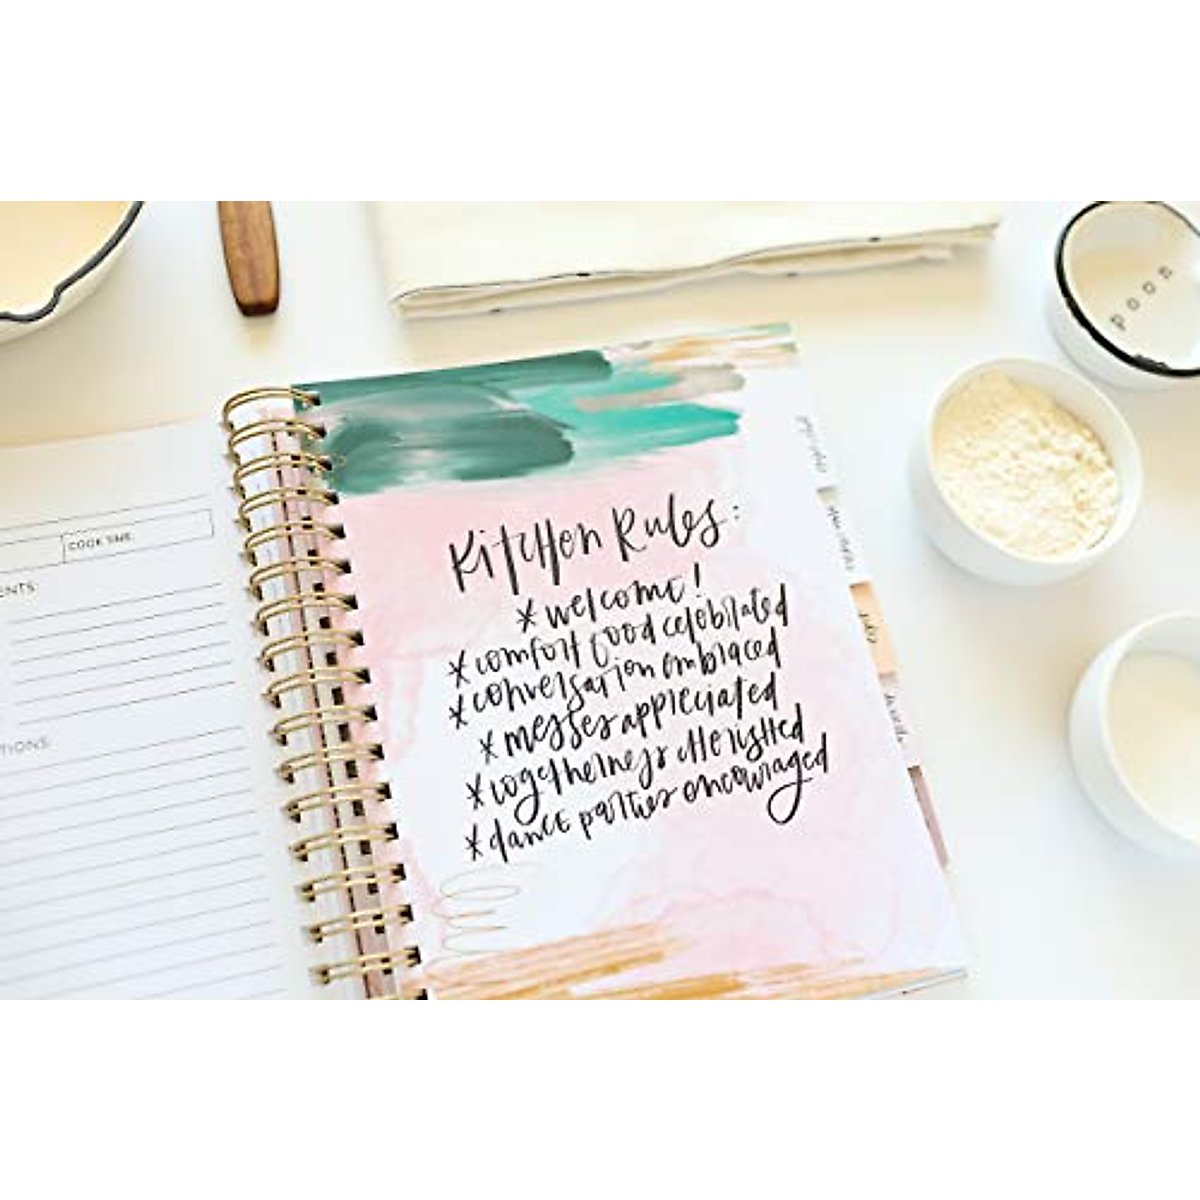 good
COOK TIME:
ENTS:
TIONS:
Kitchen Rules:
* welcome!
* comfort food celebrated
* conversation embraced
* messes appreciated
* togetherness cherished
* dance parties encouraged